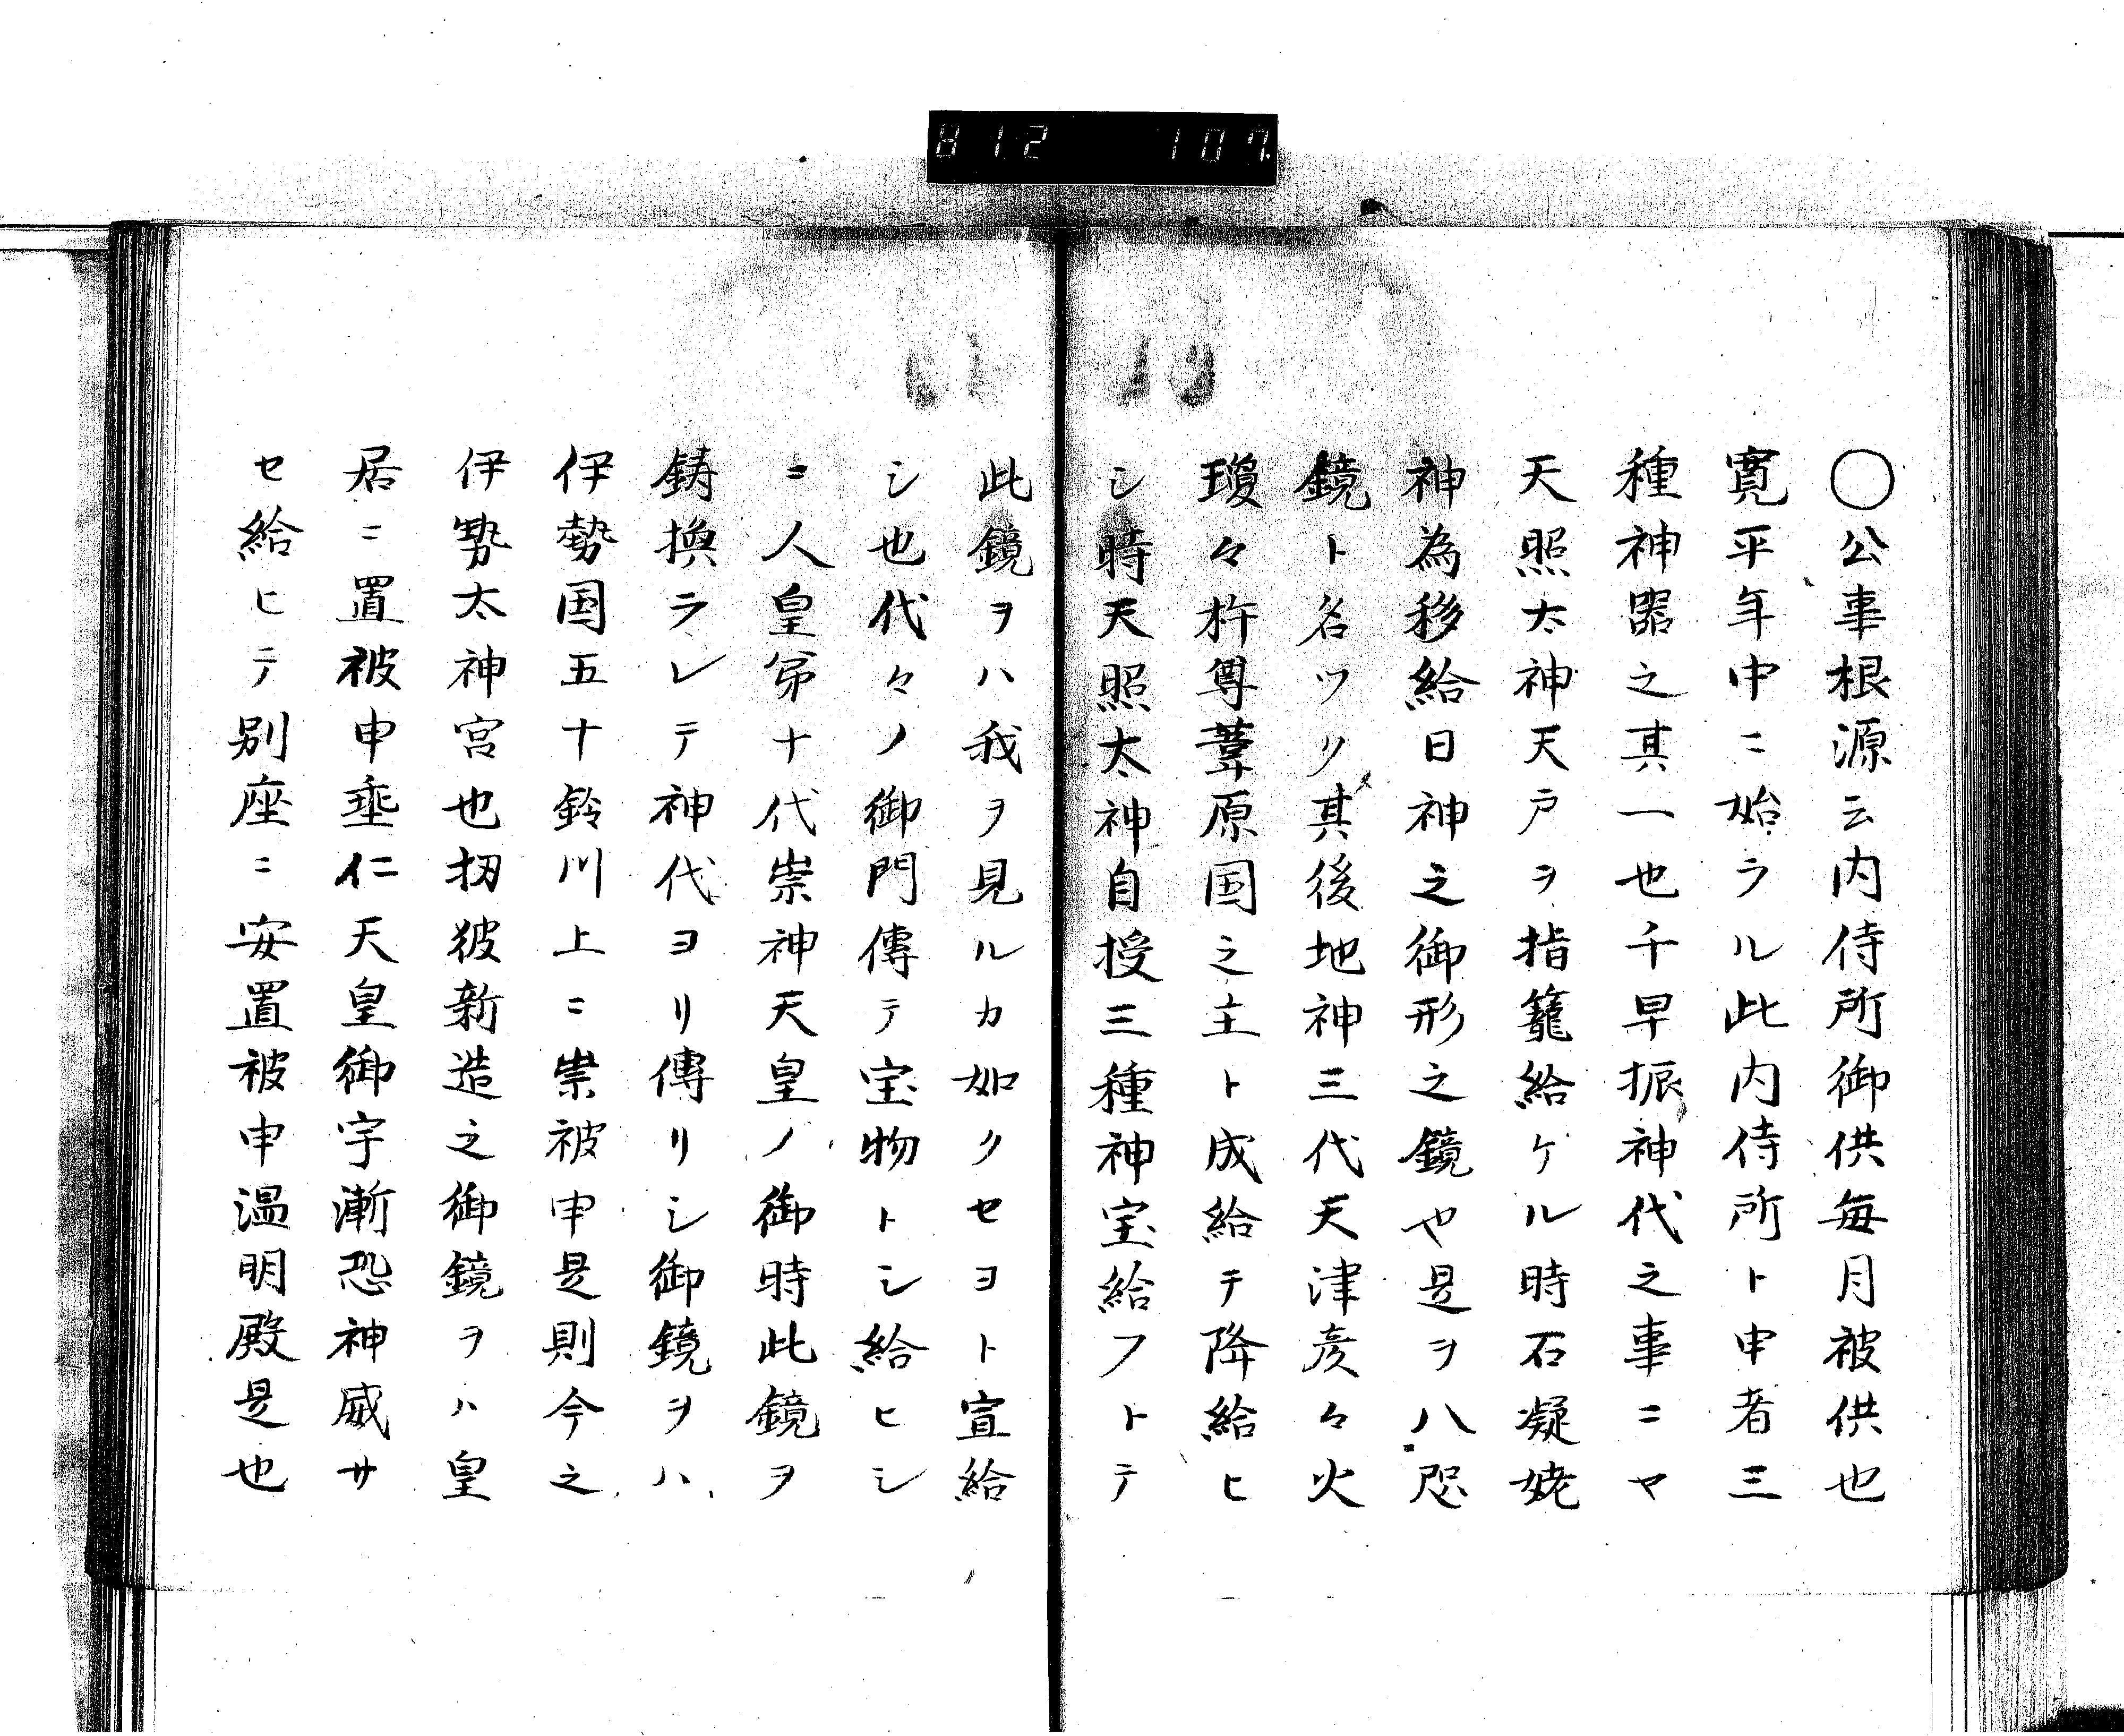 812 107
〇公事根源云内侍所御供毎月被供也
寛平年中ニ始ラル此内侍所ト申者三
種神器之其一也千早振神代之事ニヤ
天照太神天戸ヲ指籠給ケル時石凝姥
神為移給日神之御形之鏡也是ヲハ恐
鏡ト名ツク其後地神三代天津彦々火
瓊々杵尊葦原国之主ト成給テ降給ヒ
シ時天照太神自授三種神宝給フトテ
此鏡ヲハ我ヲ見ルカ如クセヨト宣給
シ也代々ノ御門傳テ宝物トシ給ヒシ
ニ人皇第十代崇神天皇ノ御時此鏡ヲ
鋳換ラレテ神代ヨリ傳リシ御鏡ヲハ
伊勢国五十鈴川上ニ崇被申是則今之
伊勢太神宮也扨彼新造之御鏡ヲハ皇
居ニ置被申垂仁天皇御宇漸恐神威サ
セ給ヒテ別座ニ安置被申温明殿是也